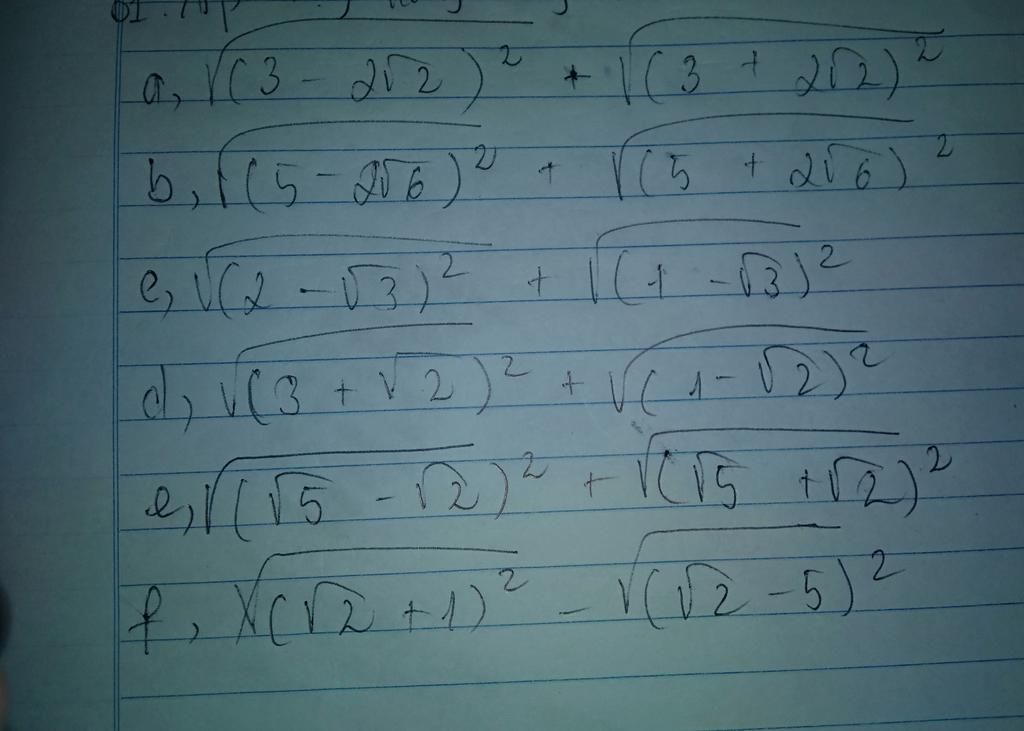 a, √(3 - 2√2)² + √(3 + 2√2)²
b, √(5 - 2√6)² + √(5 + 2√6)²
c, √(2 - √3)² + √(1 - √3)²
d, √(3 + √2)² + √(1 - √2)²
e, √(√5 - √2)² + √(√5 + √2)²
f, √(√2 + 1)² - √(√2 - 5)²